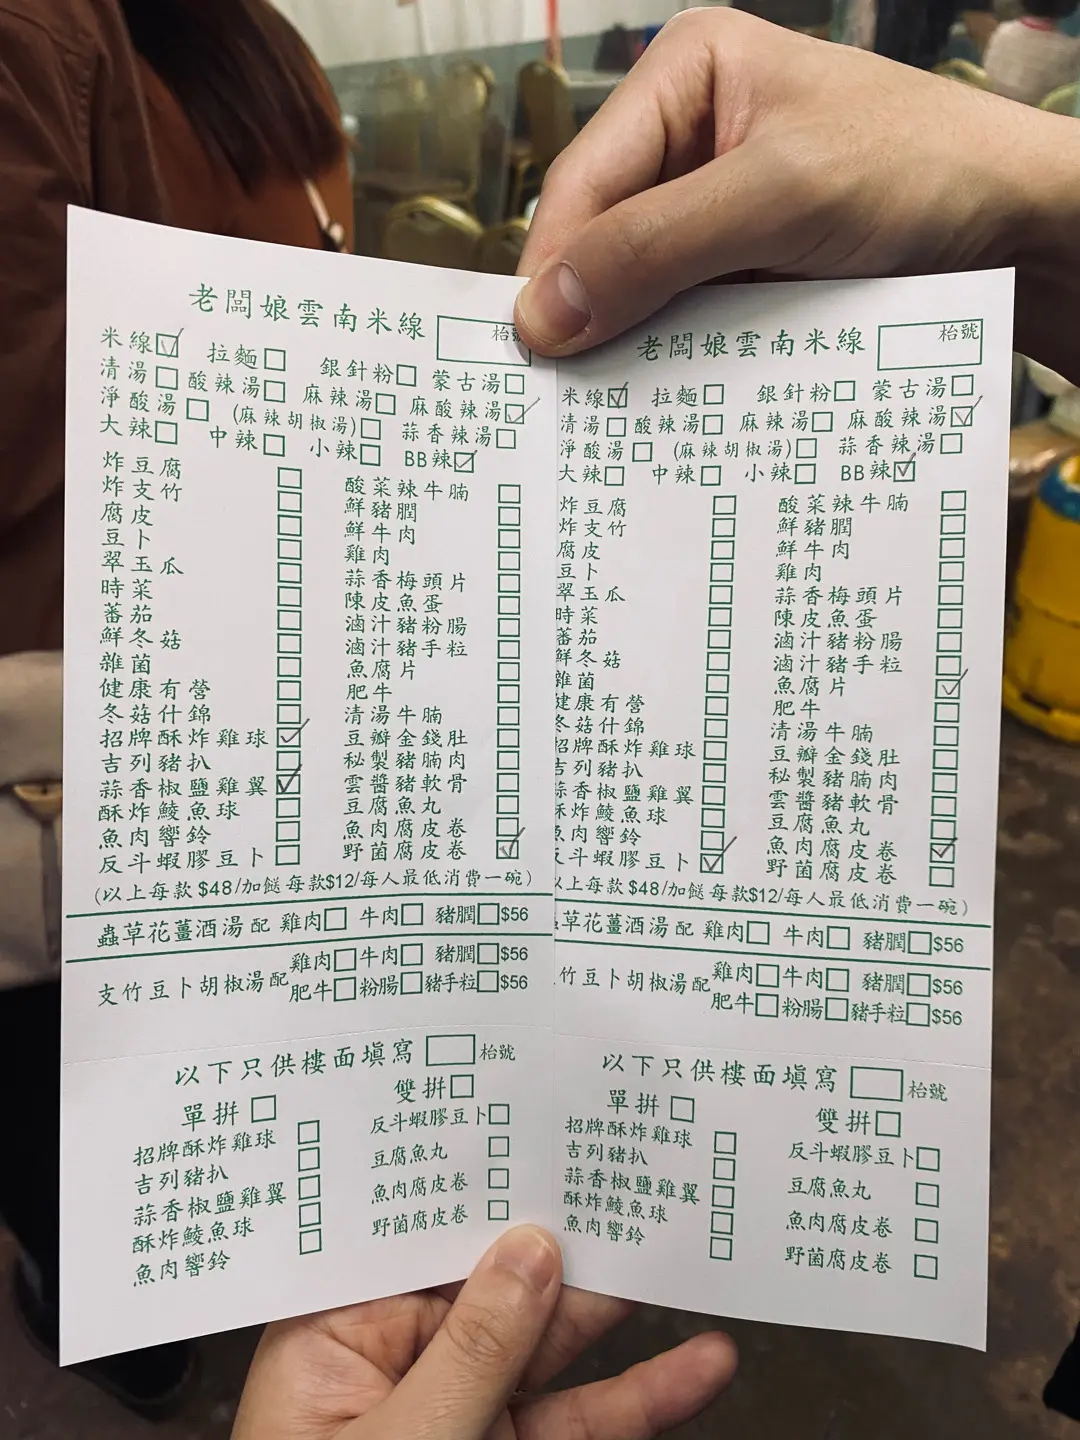 老闆娘雲南米線
枱號
米線 拉麵 銀針粉 蒙古湯
清湯 酸辣湯 麻辣湯 麻酸辣湯
淨酸湯 (麻辣胡椒湯) 蒜香辣湯
大辣 中辣 小辣 BB辣
炸豆腐
炸支竹
腐皮
豆卜
翠玉瓜
時菜
蕃茄
鮮冬菇
雜菌
健康有營
冬菇什錦
招牌酥炸雞球
吉列豬扒
蒜香椒鹽雞翼
酥炸鯪魚球
魚肉響鈴
反斗蝦膠豆卜
酸菜辣牛腩
鮮豬膶
鮮牛肉
雞肉
蒜香梅頭片
陳皮魚蛋
滷汁豬粉腸
滷汁豬手粒
魚腐片
肥牛
清湯牛腩
豆瓣金錢肚
秘製豬腩肉
雲醬豬軟骨
豆腐魚丸
魚肉腐皮卷
野菌腐皮卷
(以上每款$48/加餸每款$12/每人最低消費一碗)
蟲草花薑酒湯配 雞肉 牛肉 豬膶 $56
支竹豆卜胡椒湯配 雞肉 牛肉 豬膶 $56
肥牛 粉腸 豬手粒 $56
以下只供樓面填寫 枱號
單拼 雙拼
招牌酥炸雞球
吉列豬扒
蒜香椒鹽雞翼
酥炸鯪魚球
魚肉響鈴
反斗蝦膠豆卜
豆腐魚丸
魚肉腐皮卷
野菌腐皮卷
老闆娘雲南米線
枱號
米線 拉麵 銀針粉 蒙古湯
清湯 酸辣湯 麻辣湯 麻酸辣湯
淨酸湯 (麻辣胡椒湯) 蒜香辣湯
大辣 中辣 小辣 BB辣
炸豆腐
炸支竹
腐皮
豆卜
翠玉瓜
時菜
蕃茄
鮮冬菇
雜菌
健康有營
冬菇什錦
招牌酥炸雞球
吉列豬扒
蒜香椒鹽雞翼
酥炸鯪魚球
魚肉響鈴
反斗蝦膠豆卜
酸菜辣牛腩
鮮豬膶
鮮牛肉
雞肉
蒜香梅頭片
陳皮魚蛋
滷汁豬粉腸
滷汁豬手粒
魚腐片
肥牛
清湯牛腩
豆瓣金錢肚
秘製豬腩肉
雲醬豬軟骨
豆腐魚丸
魚肉腐皮卷
野菌腐皮卷
以上每款$48/加餸每款$12/每人最低消費一碗)
蟲草花薑酒湯配 雞肉 牛肉 豬膶 $56
竹豆卜胡椒湯配 雞肉 牛肉 豬膶 $56
肥牛 粉腸 豬手粒 $56
以下只供樓面填寫 枱號
單拼 雙拼
招牌酥炸雞球
吉列豬扒
蒜香椒鹽雞翼
酥炸鯪魚球
魚肉響鈴
反斗蝦膠豆卜
豆腐魚丸
魚肉腐皮卷
野菌腐皮卷